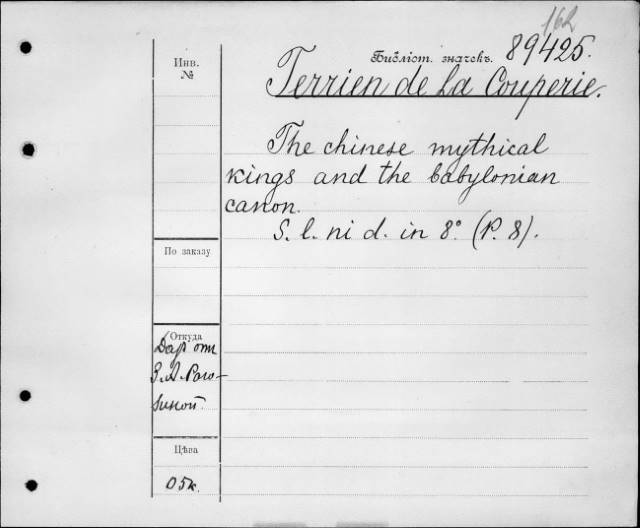 162
Инв.
№
Библіот. значекъ. 89425.
Terrien de La Couperie.
The chinese mythical
kings and the babylonian
canon.
S. l. ni d. in 8° (P. 8).
По заказу
Откуда
Даръ отъ
З. А. Раго-
зиной.
Цѣна
05к.